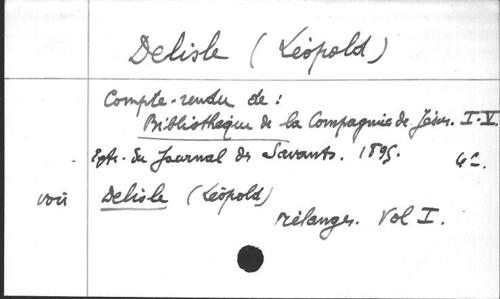 Delisle (Léopold)
Compte-rendu de :
Bibliothèque de la Compagnie de Jésus. I-V.
Extr. du Journal des Savants. 1895. 4º.
voir Delisle (Léopold)
Mélanges. Vol I.